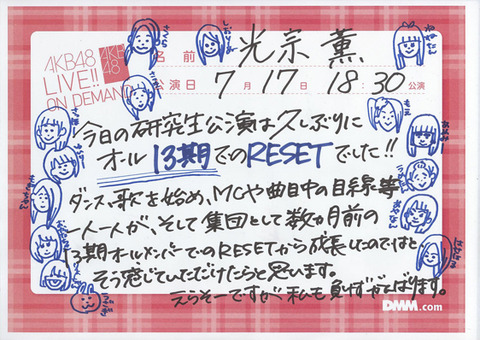 AKB48
LIVE!!
ON DEMAND
AKB48
名前 光宗 薫
公演日 7月17日 18:30公演
今日の研究生公演は久しぶりに
オール13期でのRESETでした!!
ダンス、歌を始め、MCや曲目中の目線等
一人一人が、そして集団として数ヵ月前の
13期オールメンバーでのRESETから成長したのではと
そう感じていただけたらと思います。
えらそーですが私も負けずがんばります。
DMM.com